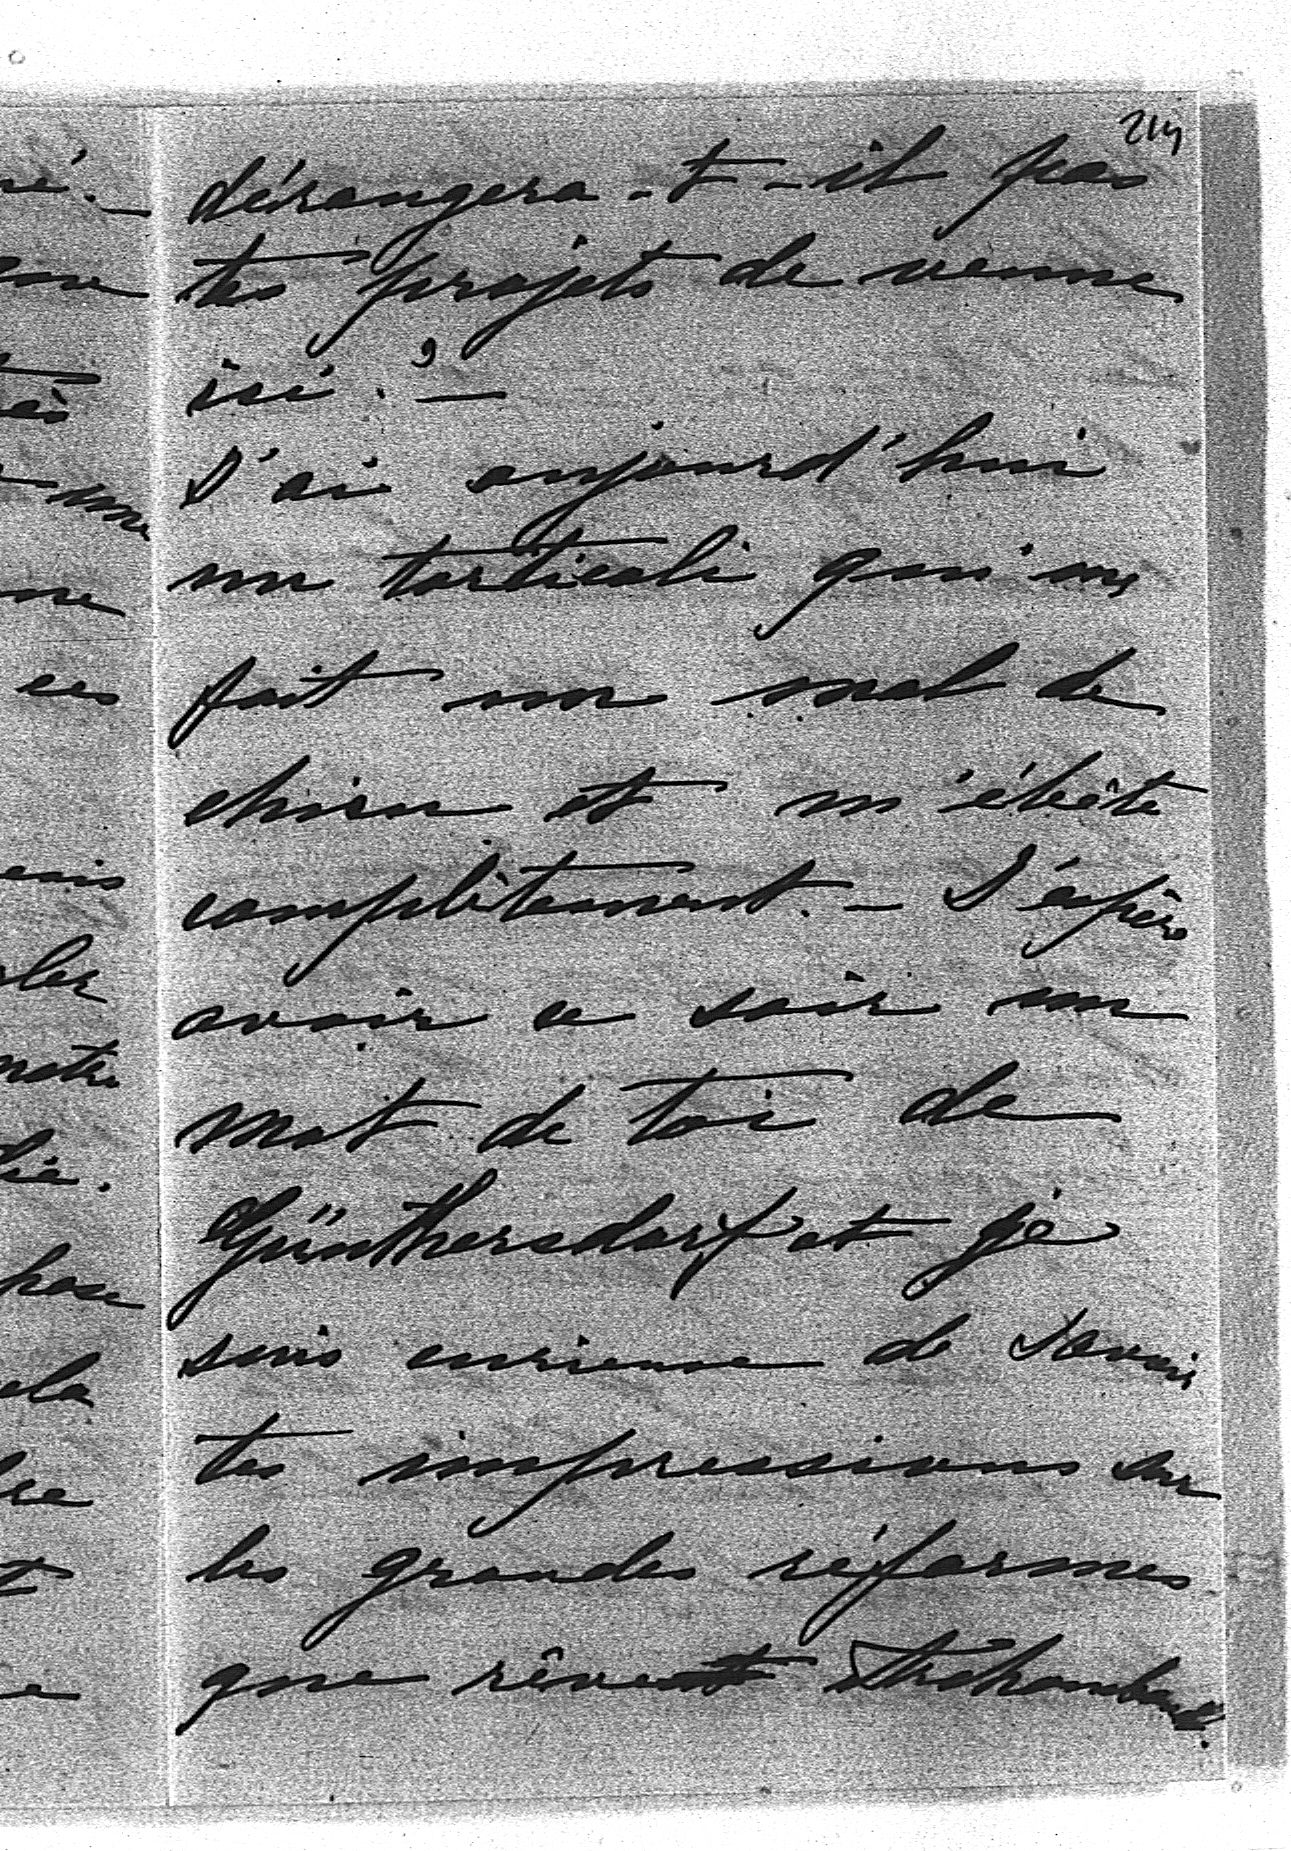 214
dérangera-t-il pas
tes projets de venue
ici. ? —
J'ai aujourd'hui
un torticoli qui me
fait un mal de
chien et m'ébête
complètement. — J'espère
avoir ce soir un
mot de toi de
Günthersdorf et je
suis curieuse de savoir
tes impressions sur
les grandes réformes
que rêvent